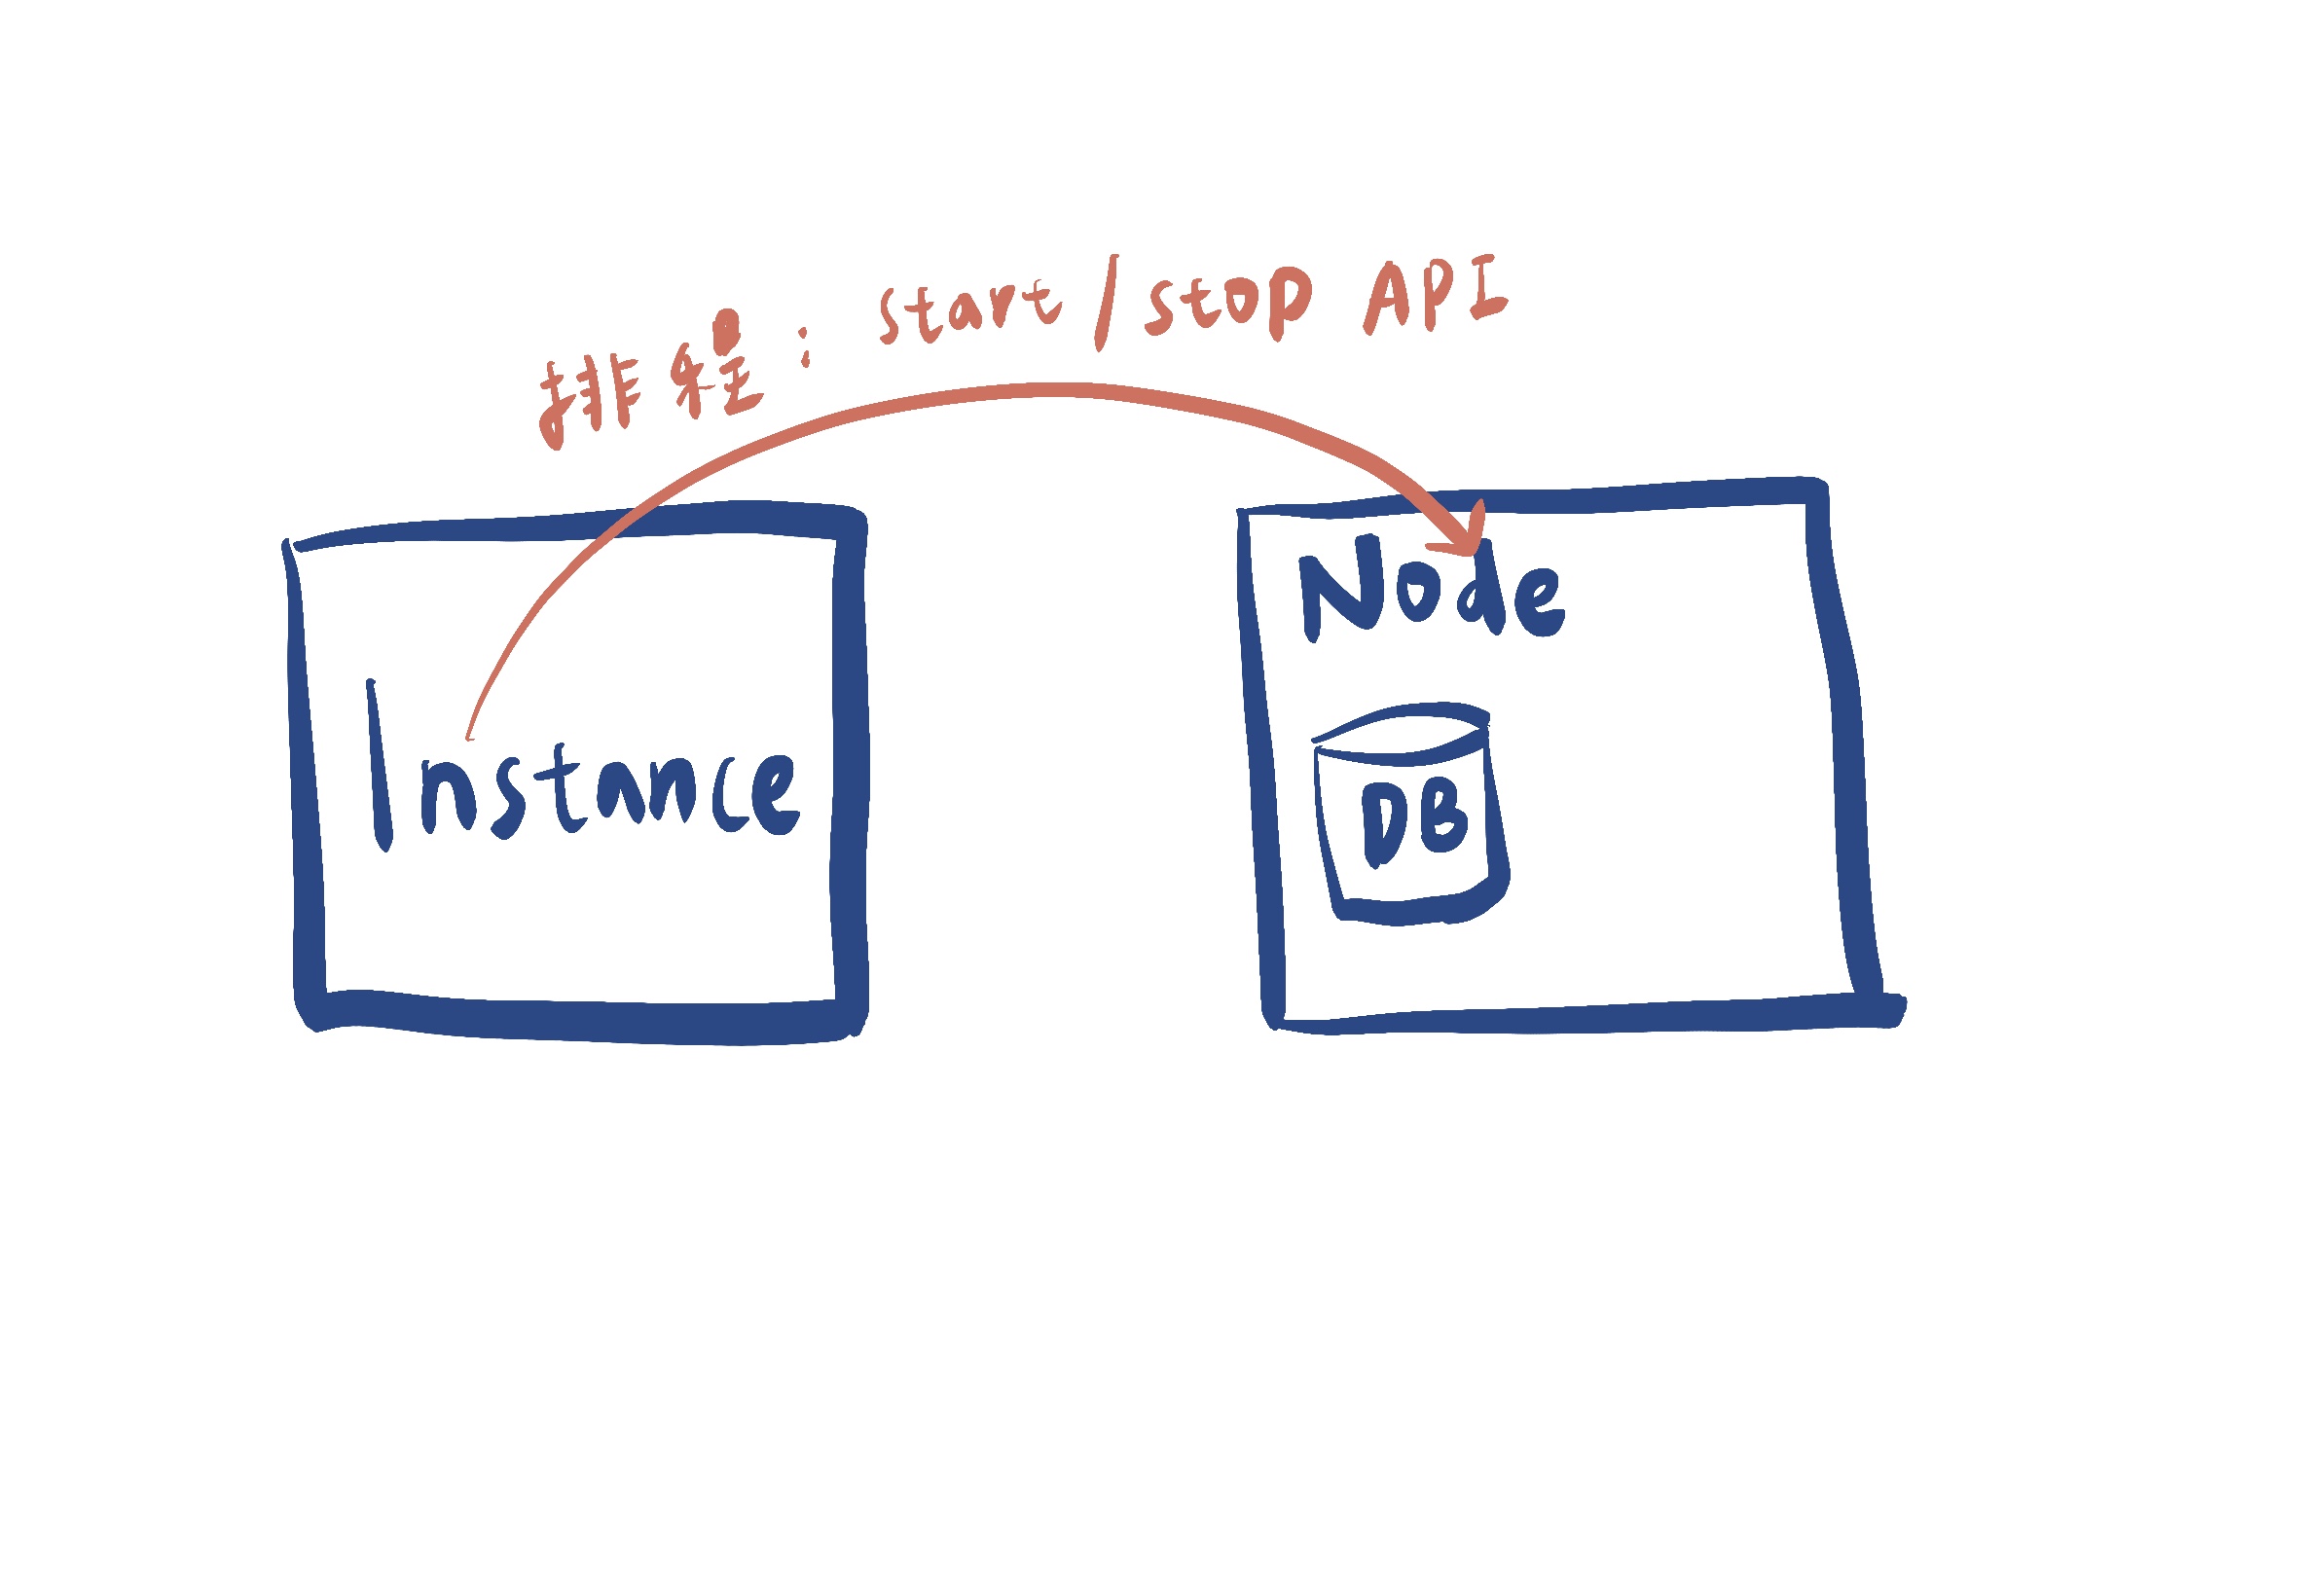 排程: start/stop API
Instance
Node
DB